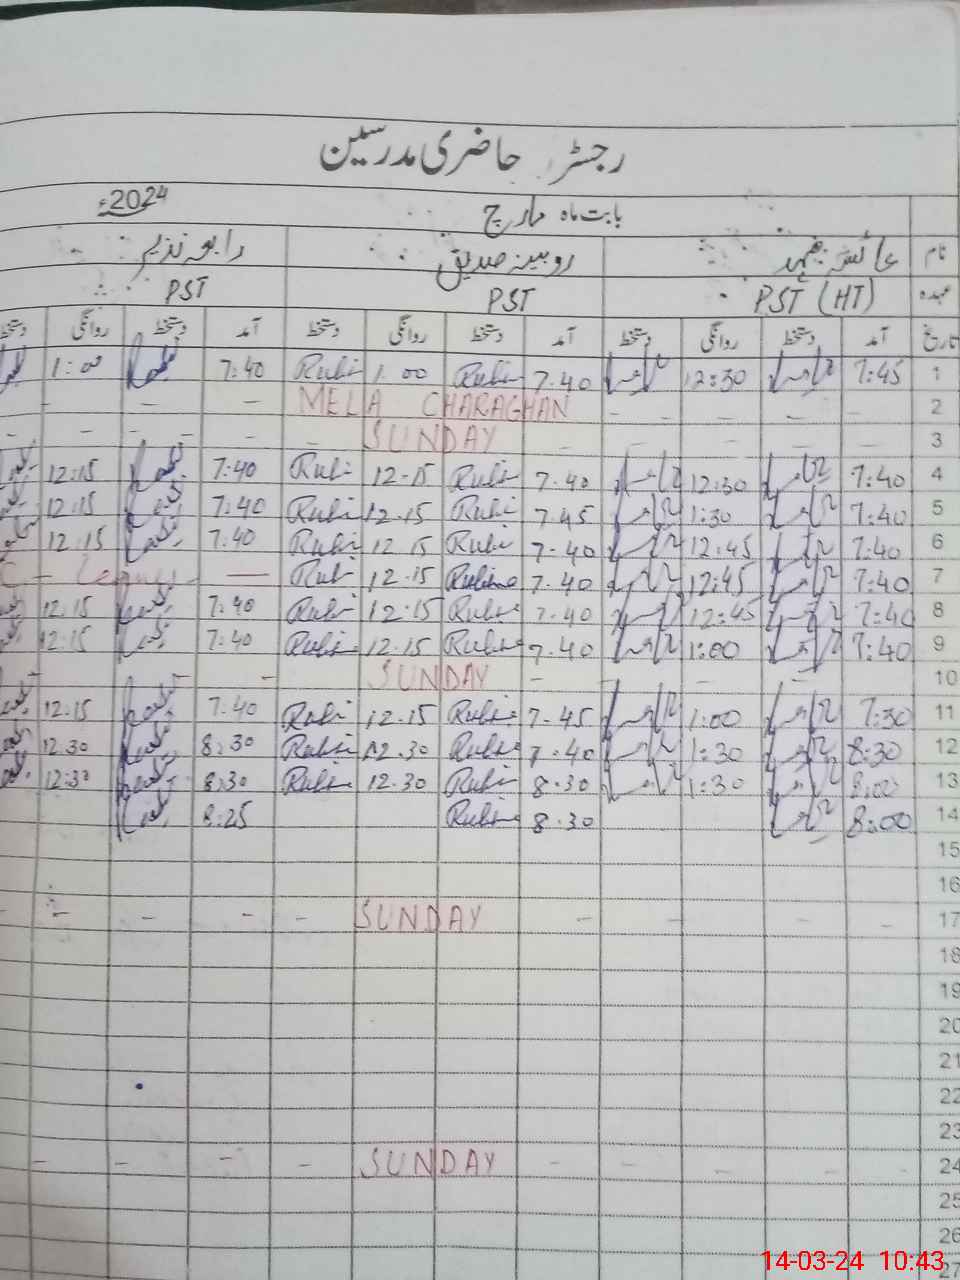 رجسٹر حاضری مدرسین
بابت ماہ مارچ 2024ء
نام عائشہ روبینہ صدیق رابعہ نذیر
عہدہ PST (HT) PST PST
تاریخ آمد دستخط روانگی دستخط آمد دستخط روانگی دستخط آمد دستخط روانگی دستخط
1 7:45 12:30 7.40 Rubi 1.00 Rubi 7:40 1:00
2 - - - - MELA CHARAGHAN - - -
3 - - - SUNDAY - - - - -
4 7:40 12:30 7.40 Rubi 12.15 Rubi 7:40 12:15
5 7:40 1:30 7.45 Rubi 12.15 Rubi 7:40 12:15
6 7:40 12:45 7.40 Rubi 12.15 Rubi 7:40 12:15
7 7:40 12:45 7.40 Rubina 12.15 Rubi
8 7:40 12:45 7.40 Rubi 12:15 Rubi 7:40 12:15
9 7:40 1:00 7.40 Rubi 12.15 Rubi 7:40 12:15
10 - - - SUNDAY - -
11 7:30 1:00 7-45 Rubi 12.15 Rubi 7:40 12:15
12 8:30 1:30 7.40 Rubi 12.30 Rubi 8:30 12:30
13 8:00 1:30 8.30 Rubi 12.30 Rubi 8:30 12:30
14 8:00 8.30 Rubi 8:25
15
16
17 - - - - SUNDAY - - - - -
18
19
20
21
22
23
24 - - - - SUNDAY - - - -
25
26
27
14-03-24 10:43